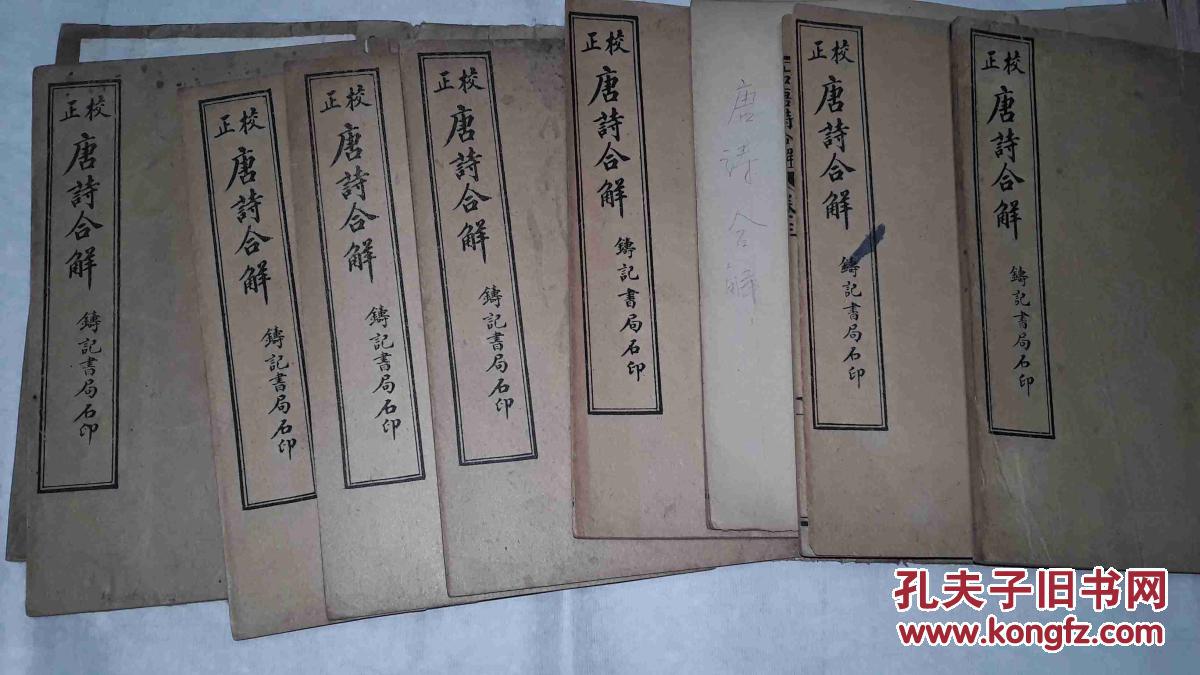 校正
唐詩合解
鑄記書局石印
校正
唐詩合解
鑄記書局石印
校正
唐詩合解
鑄記書局石印
校正
唐詩合解
鑄記書局石印
校正
唐詩合解
鑄記書局石印
唐诗合解
校正
唐詩合解
鑄記書局石印
校正
唐詩合解
鑄記書局石印
孔夫子旧书网
www.kongfz.com